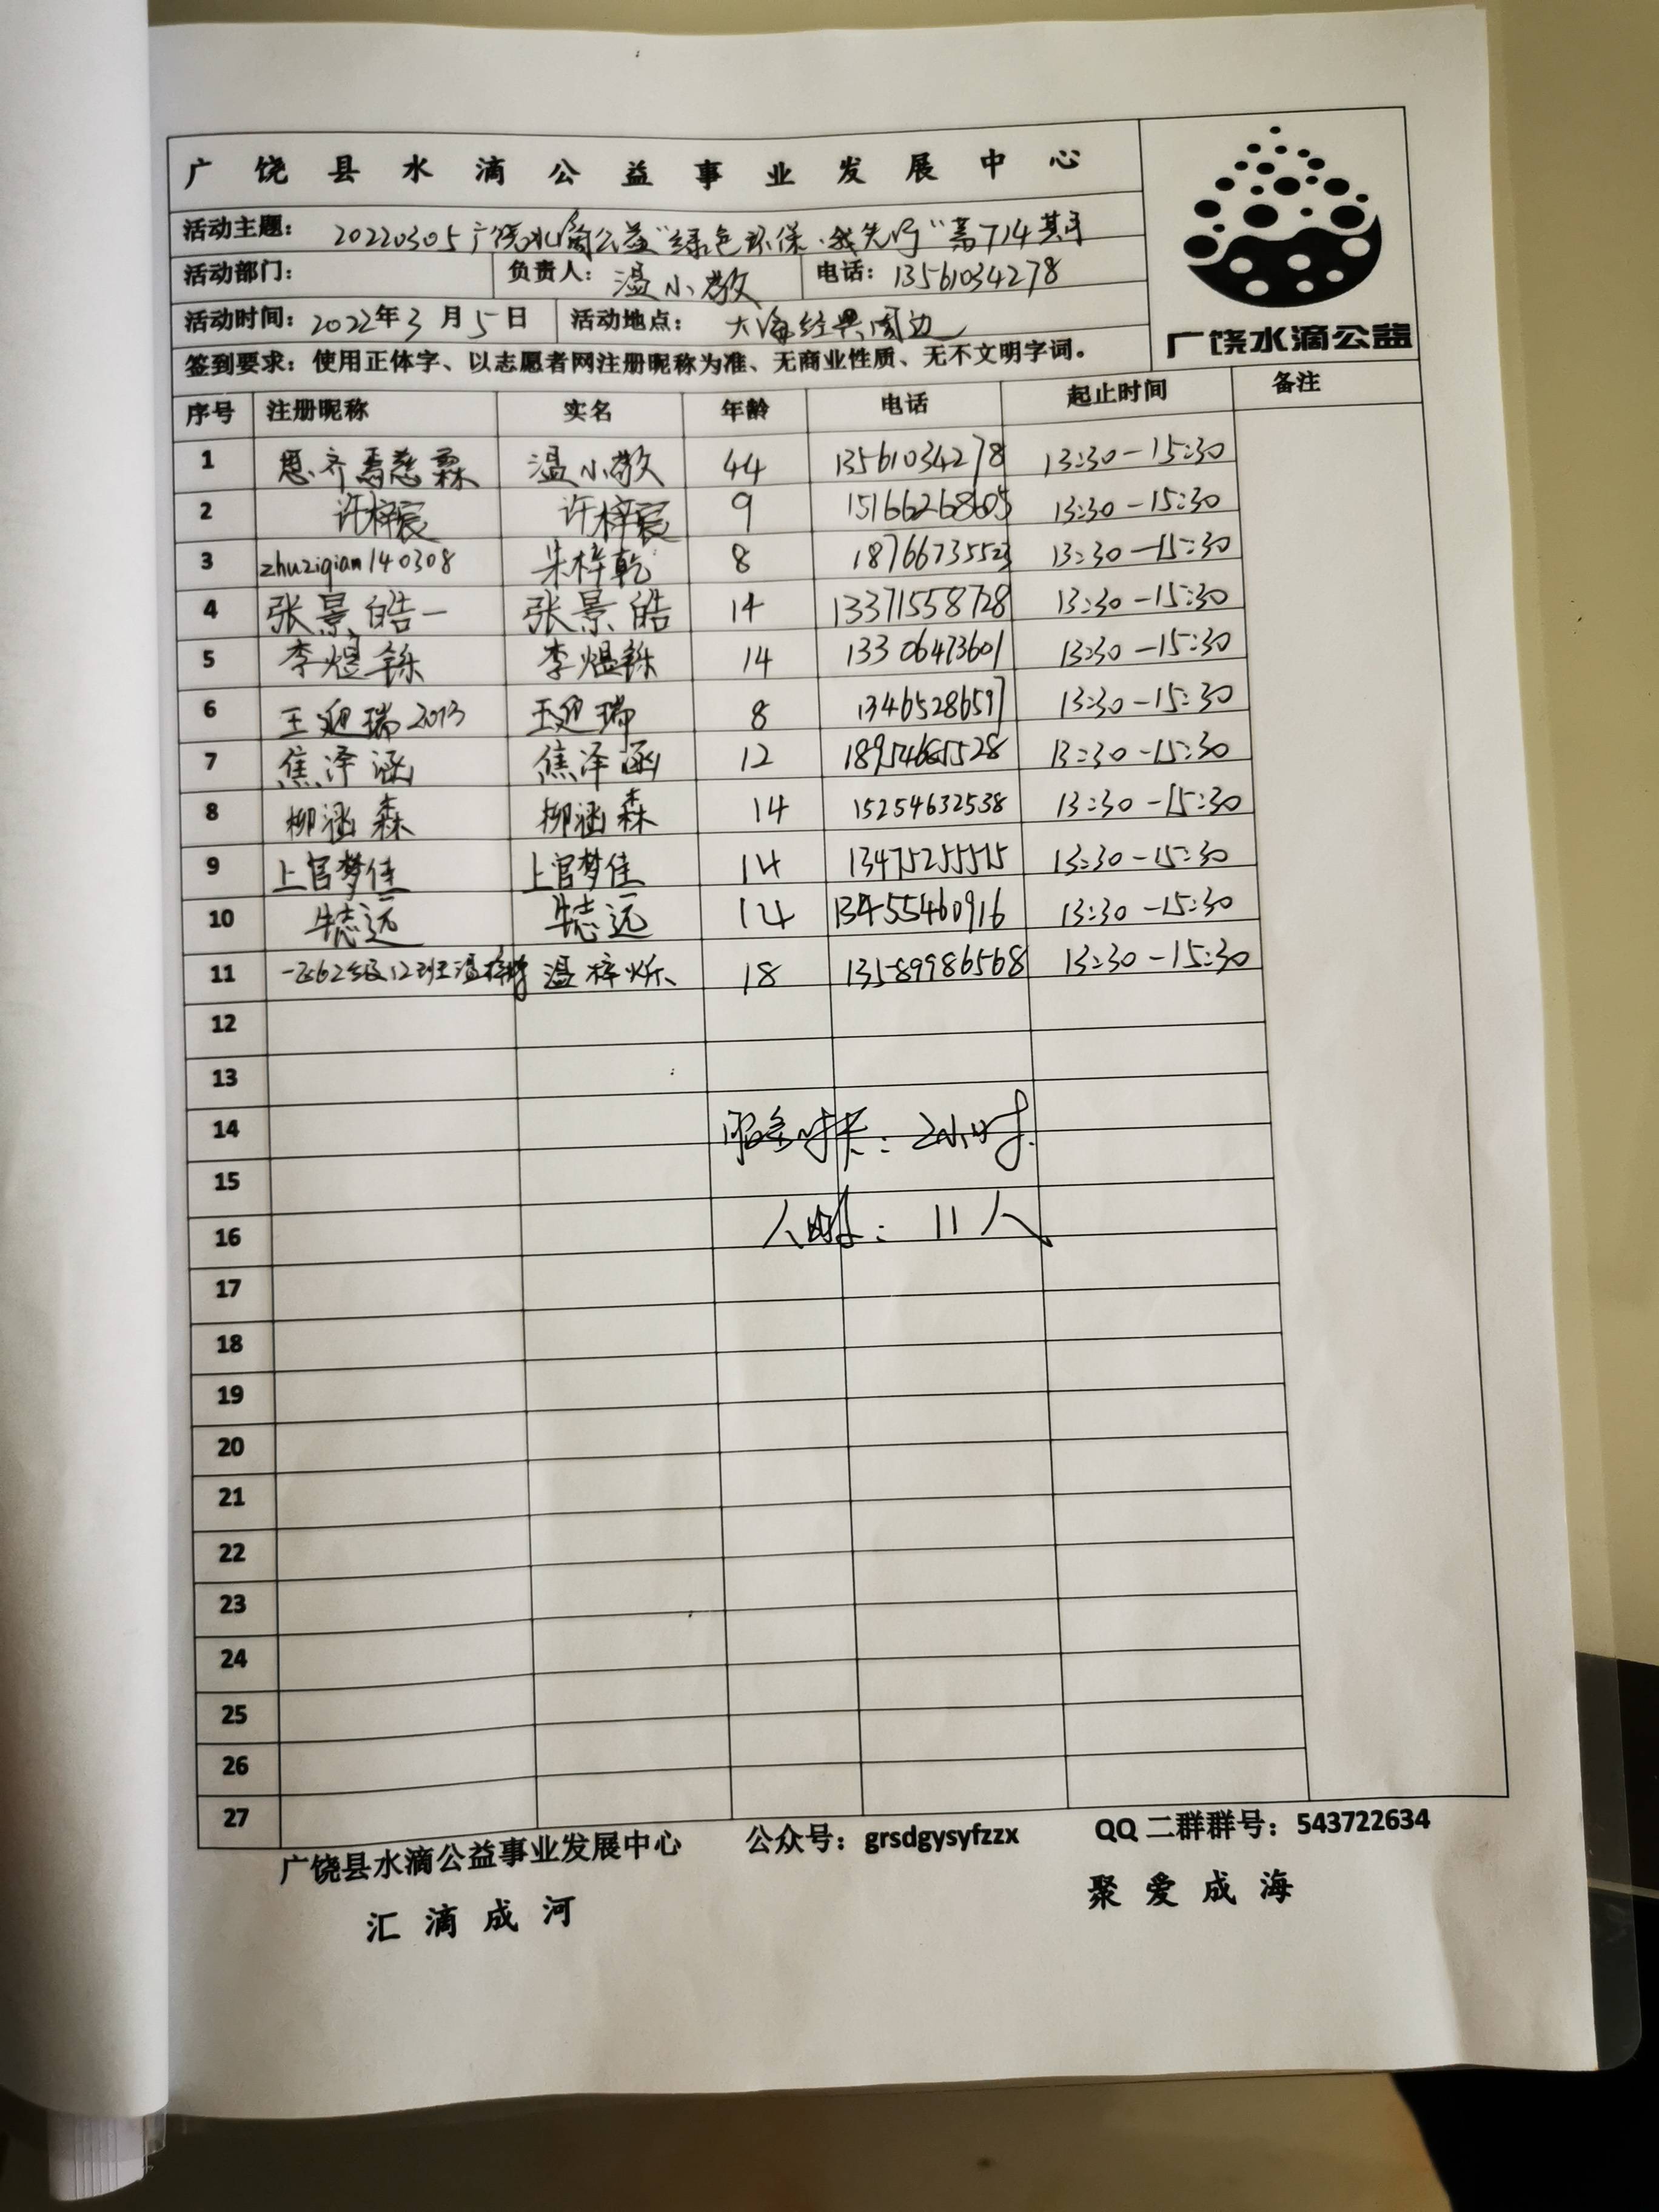 广饶县水滴公益事业发展中心
活动主题： 20220305广饶水滴公益“绿色环保·我先行”第714期
活动部门： 负责人：温小敏 电话：13561034278
活动时间：2022年3月5日 活动地点：大海经典周边
广饶水滴公益
签到要求：使用正体字、以志愿者网注册昵称为准、无商业性质、无不文明字词。
序号 注册昵称 实名 年龄 电话 起止时间 备注
1 思齐 温小敏 44 13561034278 13:30-15:30
2 许梓宸 许梓宸 9 15166268605 13:30-15:30
3 zhuziqian140308 朱梓乾 8 18766735523 13:30-15:30
4 张景皓一 张景皓 14 13371558728 13:30-15:30
5 李煜铄 李煜铄 14 13306473601 13:30-15:30
6 王迎瑞2013 王迎瑞 8 13465286597 13:30-15:30
7 焦泽涵 焦泽涵 12 13:30-15:30
8 柳涵森 柳涵森 14 15254632538 13:30-15:30
9 上官梦佳 上官梦佳 14 13475255575 13:30-15:30
10 牛志远 牛志远 14 13455460916 13:30-15:30
11 级12班温梓 温梓烁 18 13589986568 13:30-15:30
12
13
14 服务时长：2小时.
15
16 人数：11人
17
18
19
20
21
22
23
24
25
26
27
广饶县水滴公益事业发展中心 公众号：grsdgysyfzzx QQ二群群号：543722634
汇滴成河 聚爱成海